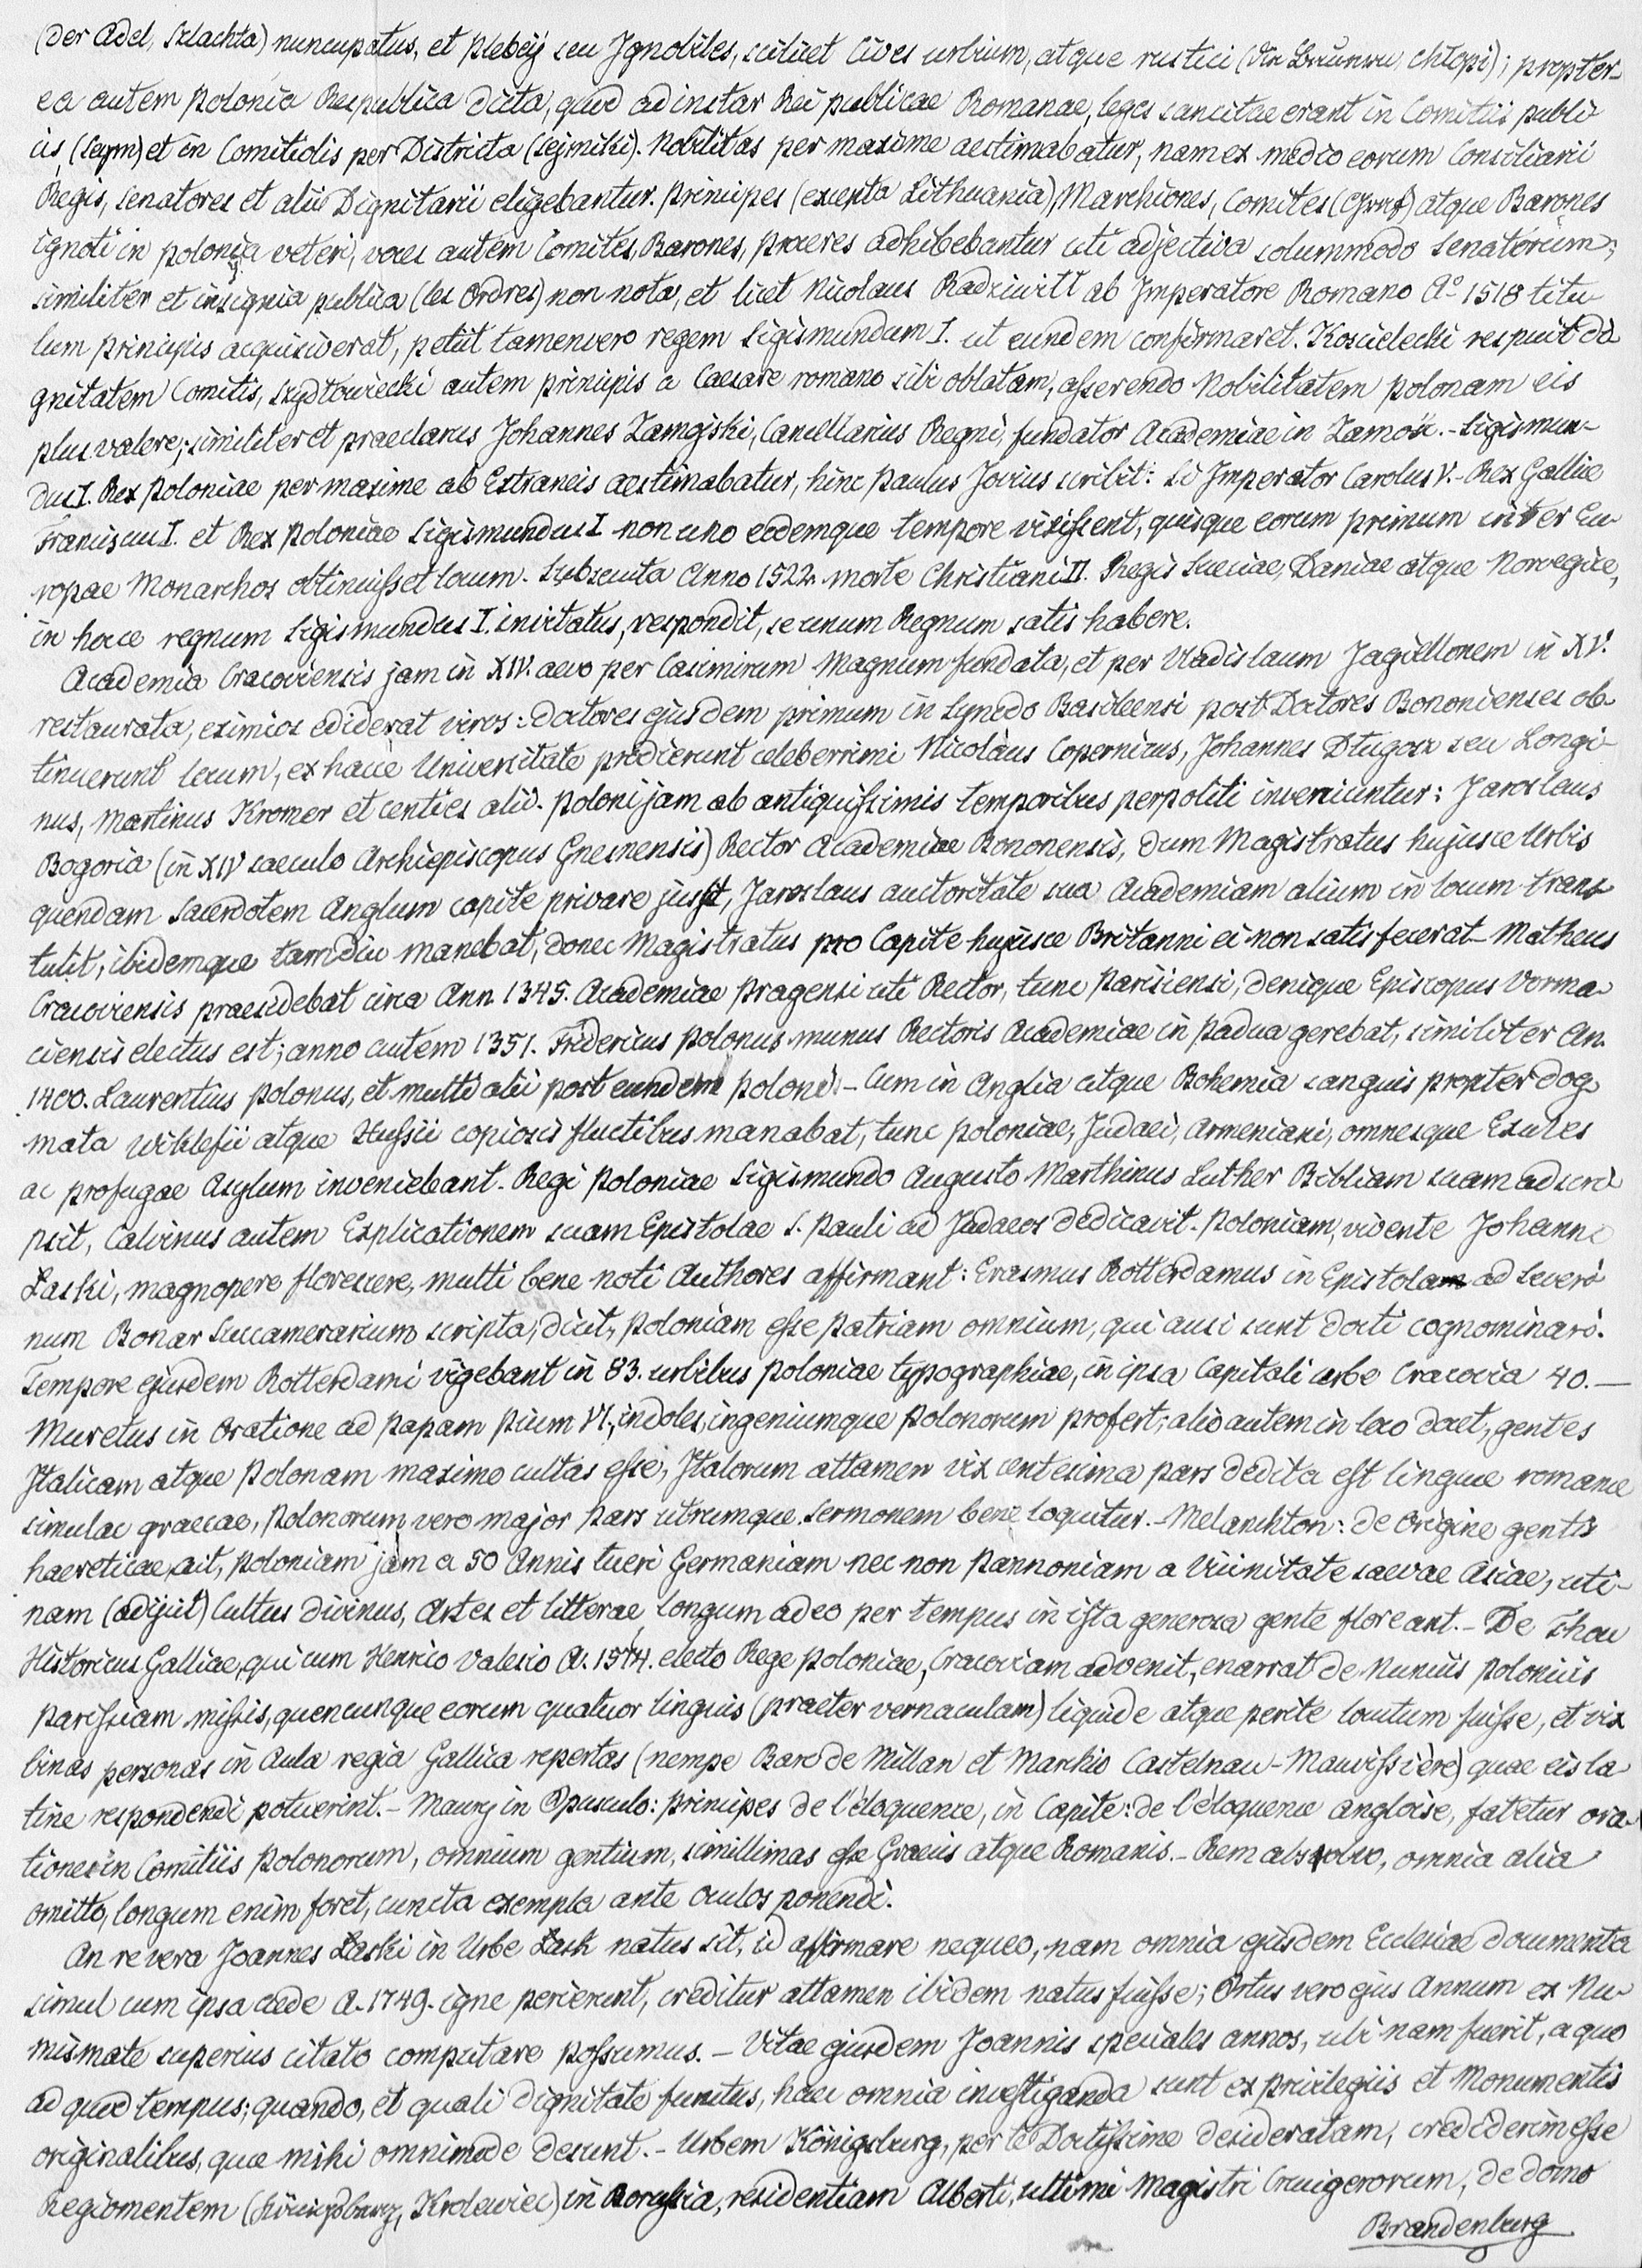 (der Adel, Szlachta) nuncupatus, et Plebeij seu Jgnobiles, scilicet Cives urbium, atque rustici (die Bauern, Chlopi); propter-
ea autem Polonia Respublica dicta, quod ad instar Rei publicae Romanae, leges sancitae erant in Comitiis publi-
cis (Seym) et in Comitiolis per Districta (Sejmiki). Nobilitas per maxime aestimabatur, nam ex medio eorum Consiliarii
Regis, Senatores et alii Dignitarii eligebantur. Principes (excepta Lithuania), Marchiones, Comites (Graf) atque Barones
ignoti in Polonia veteri, voces autem Comites, Barones, proceres adhibebantur uti adjectiva solummodo Senatorum;
similiter et insignia publica (les Ordres) non nota, et licet Nicolaus Radziwill ab Jmperatore Romano Aº 1518 titu-
lum principis acquisiverat, petiit tamen vero regem Sigismundum I. ut eundem confirmaret. Koscielecki respuit di-
gnitatem Comitis, Szydłowiecki autem principis a Caesare romano sibi oblatam, asserendo Nobilitatem polonam eis
plus valere; similiter et praeclarus Johannes Zamojski, Cancellarius Regni, fundator Academiae in Zamość. - Sigismun-
dus I. Rex Poloniae per maxime ab Extraneis aestimabatur, hinc Paulus Jovius scribit: Si Jmperator Carolus V. - Rex Galliae
Franciscus I. et Rex Poloniae Sigismundus I non uno eodemque tempore vixissent, quisque eorum primum inter Eu-
ropae Monarchos obtinuisset locum. Subsecuta Anno 1522. morte Christiani II. Regis Sueciae, Daniae atque Norvegiae,
in hocce regnum Sigismundus I. invitatus, respondit, se unum Regnum satis habere.
Academia Cracoviensis jam in XIV. aevo per Casimirum Magnum fundata, et per Vladislaum Jagiellonem in XV.
restaurata, eximios ediderat viros: doctores ejusdem primum in Synodo Basileensi post Doctores Bononienses ob-
tinuerunt locum, ex hacce Universitate prodierunt celeberrimi Nicolaus Copernicus, Johannes Długosz seu Longi-
nus, Martinus Kromer et centies alii. Poloni jam ab antiquissimis temporibus perpoliti inveniuntur: Jaroslaus
Bogoria (in XIV saeculo Archiepiscopus Gnesnensis) Rector Academiae Bononensis, dum Magistratus hujusce Urbis
quendam Sacerdotem Anglum capite privare jussit, Jaroslaus auctoritate sua Academiam alium in locum trans-
tulit, ibidemque tamdiu manebat, donec Magistratus pro Capite hujusce Britanni ei non satis fecerat - Matheus
Cracoviensis praesidebat circa Ann. 1345. Academiae Pragensi uti Rector, tunc Parisiensi, denique Episcopus Vorma-
ciensis electus est; anno autem 1351. Fridericus Polonus munus Rectoris Academiae in Padua gerebat, similiter An.
1400. Laurentius Polonus, et multi alii post eundem Poloni. - Cum in Anglia atque Bohemia sanguis propter dog-
mata Wiklefii atque Hussii copiosis fluctibus manabat, tunc Poloniae, Judaei, Armeniani, omnesque Exules
ac profugae Asylum inveniebant. Regi Poloniae Sigismundo Augusto Marthinus Luther Bibliam suam adscri-
psit, Calvinus autem Explicationem suam Epistolae S. Pauli ad Judaeos dedicavit. Poloniam, vivente Johanne
Łaski, magnopere florescere, multi bene noti Authores affirmant: Erasmus Rotterdamus in Epistola ad Severi-
num Bonar Succamerarium scripta, dicit, Poloniam esse Patriam omnium, qui ausi sunt docti cognominari.
Tempore ejusdem Rotterdami vigebant in 83. urbibus Poloniae typographiae, in ipsa Capitali urbe Cracovia 40. —
Muretus in Oratione ad Papam Pium VI., indoles, ingeniumque Polonorum profert; alio autem in loco docet, gentes
Jtalicam atque Polonam maxime cultas esse, Jtalorum attamen vix centesima pars dedita est linguae romanae
simulac graecae, Polonorum vero major pars utrumque Sermonem bene loquitur. - Melanchton: de Origine gentis
haereticae, ait, Poloniam jam a 50 Annis tueri Germaniam nec non Pannoniam a Vicinitate saevae Asiae, uti-
nam (adijcit) Cultus divinus, Artes et litterae longum adeo per tempus in ista generosa gente floreant. - De Thou
Historicus Galliae, qui cum Henrico Valesio A. 1574. electo Rege Poloniae, Cracoviam advenit, enarrat de Nunciis Polonicis
Parissiam missis, quencunque eorum quatuor linguis (praeter vernaculam) liquide atque perite locutum fuisse, et vix
binas personas in Aula regia Gallica repertas (nempe Baro de Millan et Markio Castelnau-Mauvissière) quae eis la-
tine respondendi potuerint. - Maury in Opusculo: Principes de l'éloquence, in Capite: de l'éloquence angloise, fatetur ora-
tiones in Comitiis Polonorum, omnium gentium, simillimas esse Graecis atque Romanis. - Rem absolvo, omnia alia
omitto, longum enim foret, cuncta exempla ante oculos ponendi.
An revera Joannes Łaski in Urbe Łask natus sit, id affirmare nequeo, nam omnia ejusdem Ecclesiae documenta
simul cum ipsa aede A. 1749. igne perierunt, creditur attamen ibidem natus fuisse; Ortus vero ejus Annum ex Nu-
mismate superius citato computare possumus. - Vitae ejusdem Joannis speciales annos, ubi nam fuerit, a quo
ad quod tempus; quando, et quali dignitate functus, haec omnia investiganda sunt ex privilegiis et Monumentis
originalibus, quae mihi omnimode desunt. - Urbem Königsburg, per te Doctissime desideratam, crediderim esse
Regiomentem (Königsburg, Krolewiec) in Borussia, residentiam Alberti, ultimi Magistri Crucigerorum, de domo
Brandenburg